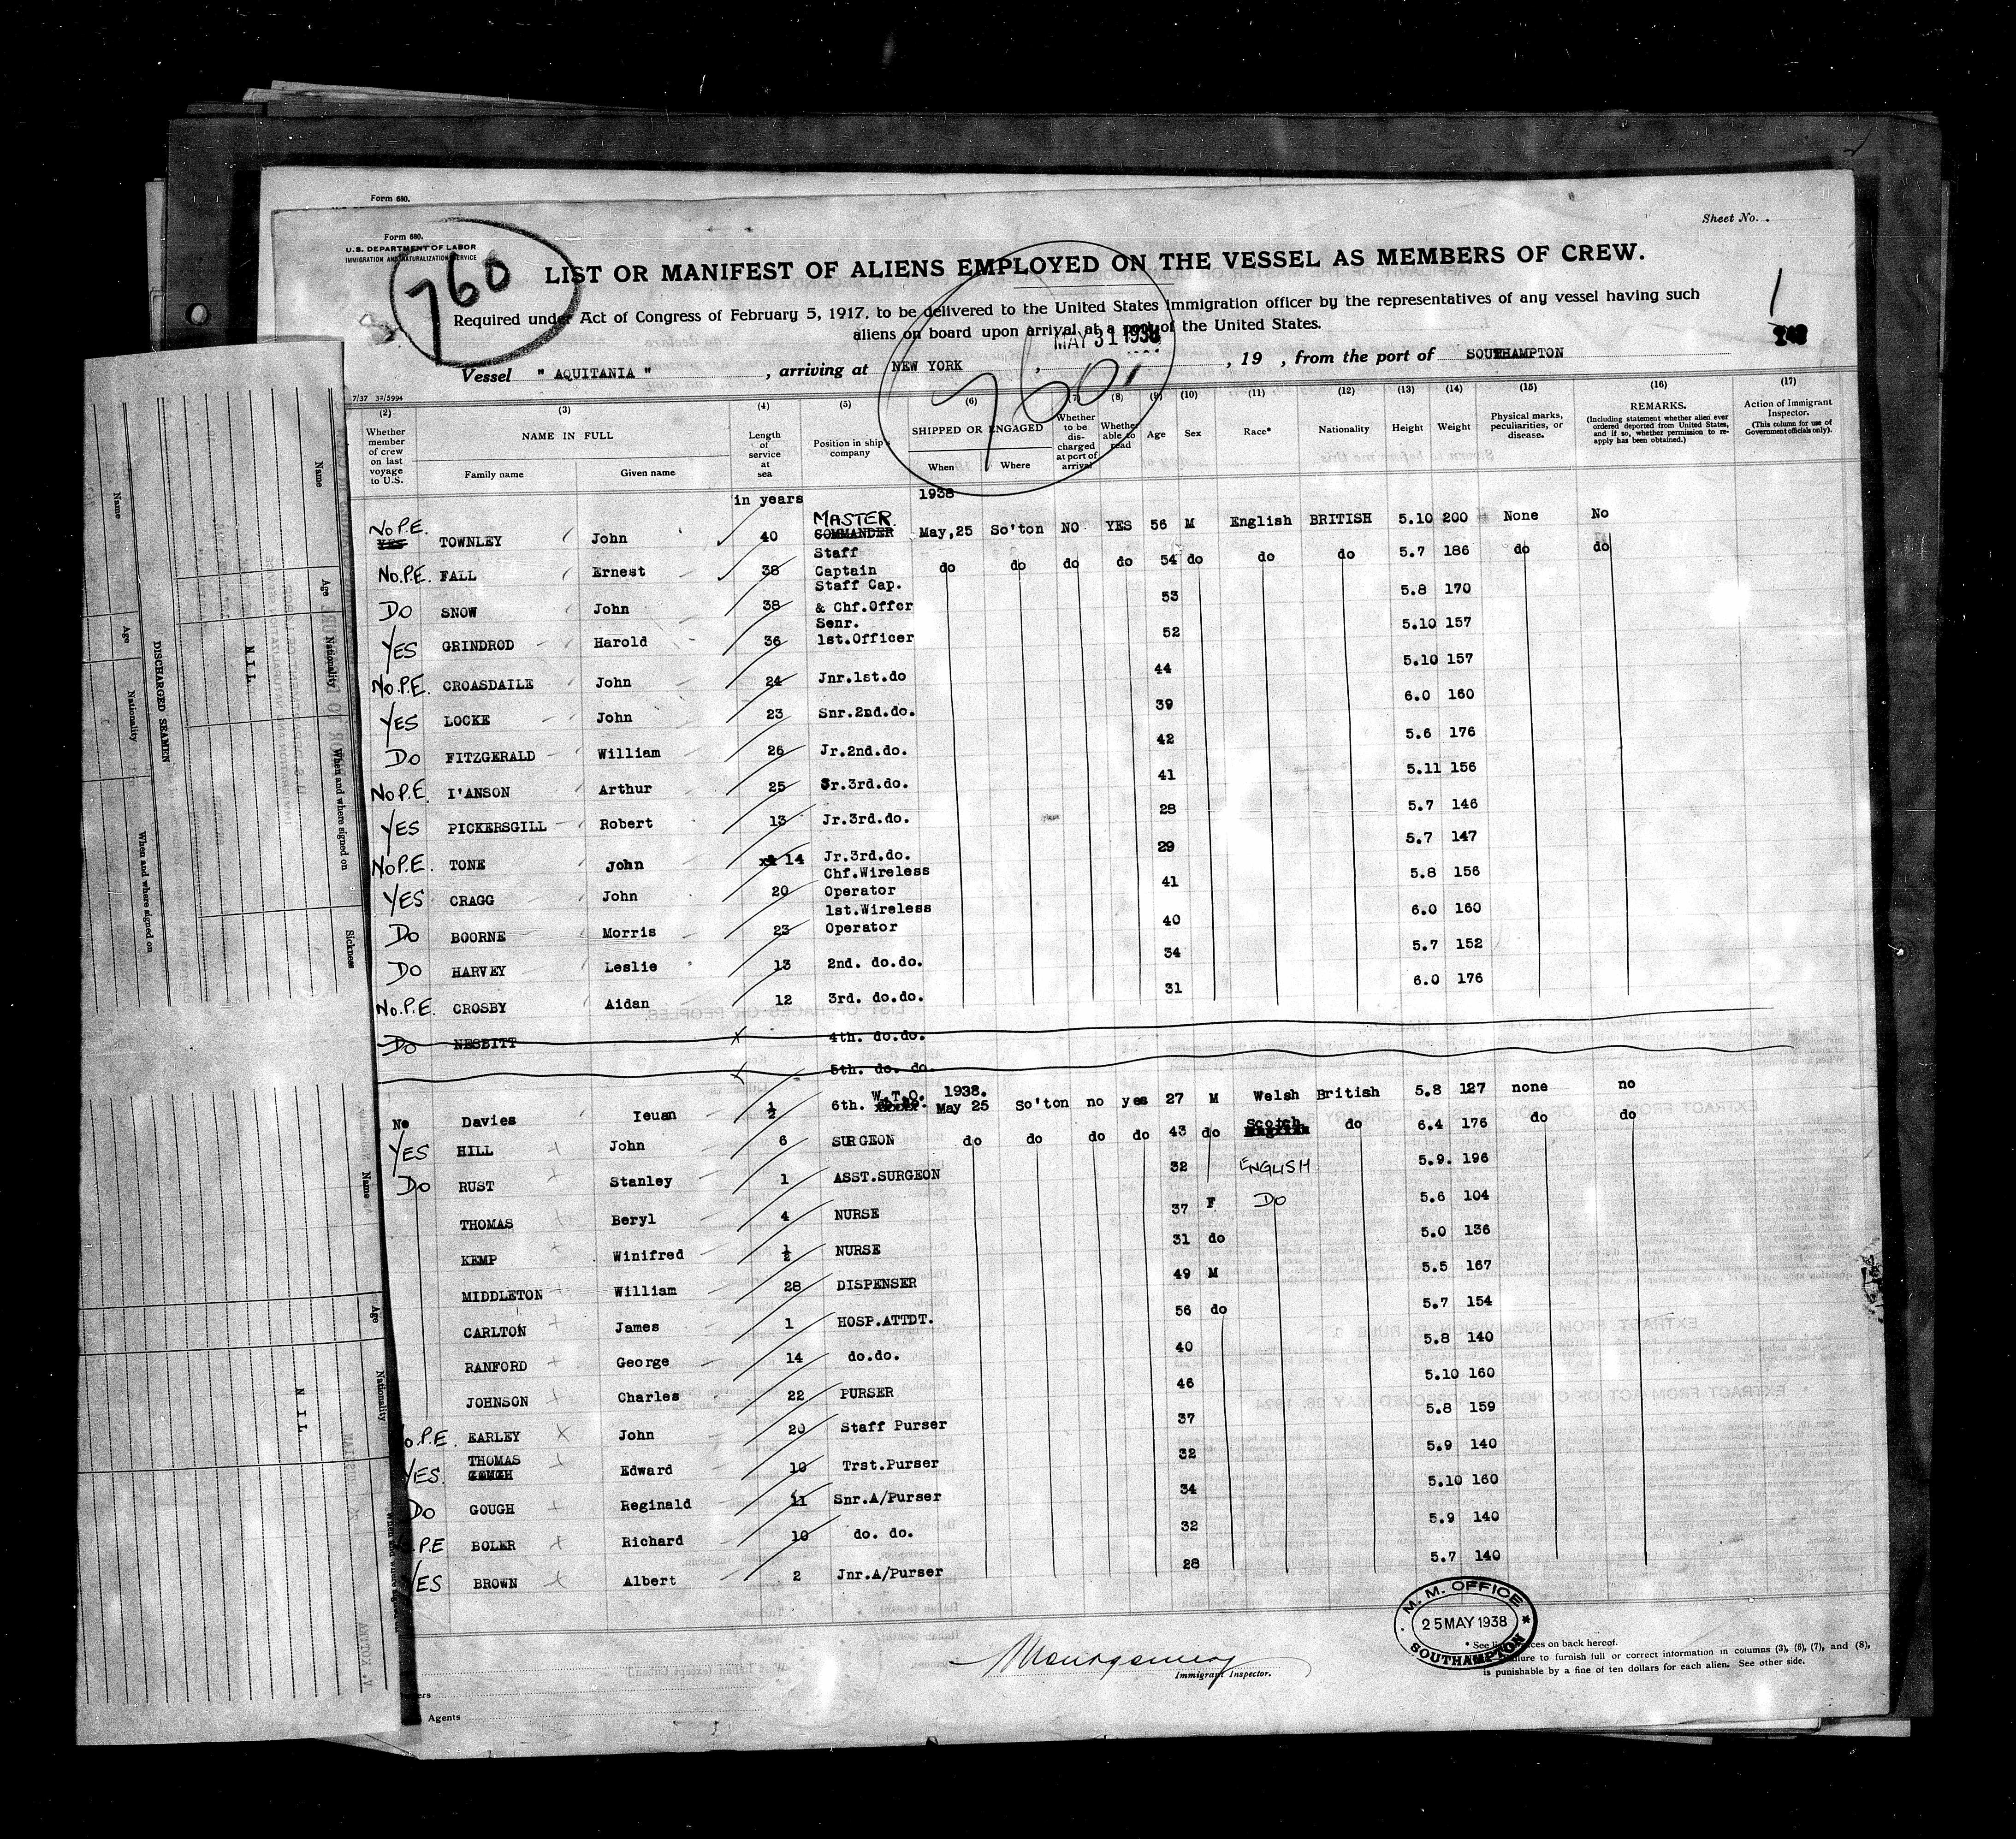 Form 680.
Sheet No.
Form 680.
U.S. DEPARTMENT OF LABOR
IMMIGRATION AND NATURALIZATION SERVICE
760
LIST OR MANIFEST OF ALIENS EMPLOYED ON THE VESSEL AS MEMBERS OF CREW.
Required under Act of Congress of February 5, 1917, to be delivered to the United States Immigration officer by the representatives of any vessel having such
aliens on board upon arrival at a port of the United States.
MAY 31 1938
Vessel " AQUITANIA " , arriving at NEW YORK , , 19 , from the port of SOUTHAMPTON
760
7/37 32/5994
(2) (3) (4) (5) (6) (7) (8) (9) (10) (11) (12) (13) (14) (15) (16) (17)
Whether member of crew on last voyage to U.S. NAME IN FULL Family name Given name Length of service at sea Position in ship's company SHIPPED OR ENGAGED When Where Whether to be discharged at port of arrival Whether able to read Age Sex Race* Nationality Height Weight Physical marks, peculiarities, or disease. REMARKS. (Including statement whether alien ever ordered deported from United States, and if so, whether permission to reapply has been obtained.) Action of Immigrant Inspector. (This column for use of Government officials only).
in years 1938
No P.E. YES TOWNLEY John 40 MASTER COMMANDER May,25 So'ton NO YES 56 M English BRITISH 5.10 200 None No
No.P.E. FALL Ernest 38 Staff Captain do do do do 54 do do do 5.7 186 do do
Do SNOW John 38 Staff Cap. & Chf.Offcr 53 5.8 170
YES GRINDROD Harold 36 Senr. 1st.Officer 52 5.10 157
No.P.E. CROASDAILE John 24 Jnr.1st.do 44 5.10 157
YES LOCKE John 23 Snr.2nd.do. 39 6.0 160
Do FITZGERALD William 26 Jr.2nd.do. 42 5.6 176
No P.E. I'ANSON Arthur 25 Sr.3rd.do. 41 5.11 156
YES PICKERSGILL Robert 13 Jr.3rd.do. 28 5.7 146
No P.E. TONE John 14 Jr.3rd.do. 29 5.7 147
YES CRAGG John 20 Chf.Wireless Operator 41 5.8 156
Do BOORNE Morris 23 1st.Wireless Operator 40 6.0 160
Do HARVEY Leslie 13 2nd. do.do. 34 5.7 152
No.P.E. CROSBY Aidan 12 3rd. do.do. 31 6.0 176
Do NESBITT 4th. do.do.
5th. do. do.
No Davies Ieuan ½ 6th. W.T.O. 1938. May 25 So'ton no yes 27 M Welsh British 5.8 127 none no
YES HILL John 6 SURGEON do do do do 43 do Scotch do 6.4 176 do do
Do RUST Stanley 1 ASST.SURGEON 32 ENGLISH 5.9. 196
THOMAS Beryl 4 NURSE 37 F Do 5.6 104
KEMP Winifred ½ NURSE 31 do 5.0 136
MIDDLETON William 28 DISPENSER 49 M 5.5 167
CARLTON James 1 HOSP.ATTDT. 56 do 5.7 154
RANFORD George 14 do.do. 40 5.8 140
JOHNSON Charles 22 PURSER 46 5.10 160
o.P.E. EARLEY John 20 Staff Purser 37 5.8 159
YES. THOMAS Edward 10 Trst.Purser 32 5.9 140
Do GOUGH Reginald 11 Snr.A/Purser 34 5.10 160
P.E BOLER Richard 10 do. do. 32 5.9 140
YES BROWN Albert 2 Jnr.A/Purser 28 5.7 140
M. M. OFFICE
25 MAY 1938
SOUTHAMPTON
Montgomery
Immigrant Inspector.
* See list of races on back hereof.
Failure to furnish full or correct information in columns (3), (6), (7), and (8),
is punishable by a fine of ten dollars for each alien. See other side.
Agents
Name Age Nationality When and where signed on Sickness
NIL
DISCHARGED SEAMEN
Name Age Nationality When and where signed on
Name Age Nationality
NIL